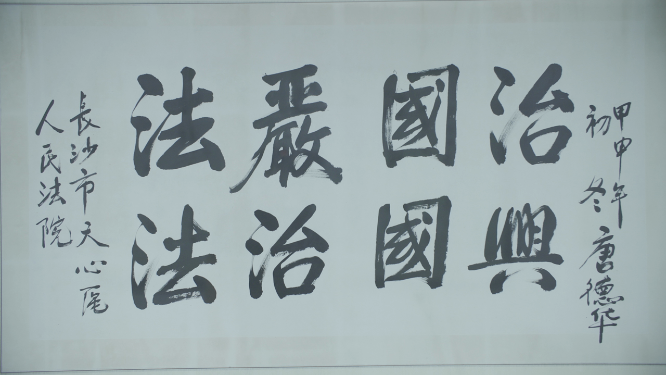 甲申年
初冬 唐德华
治國嚴法
興國治法
長沙市天心區
人民法院